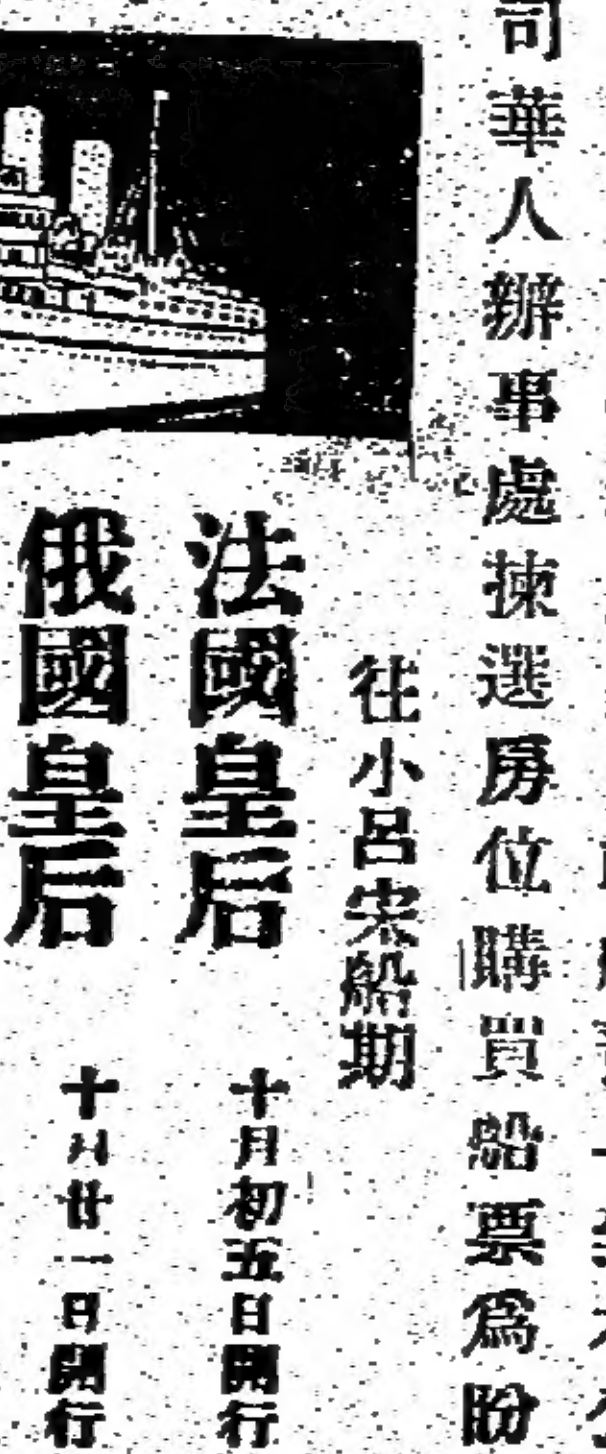 司華人辦事處揀選房位購買船票爲盼
往小呂宋船期
法國皇后 十月初五日開行
俄國皇后 十月廿一日開行